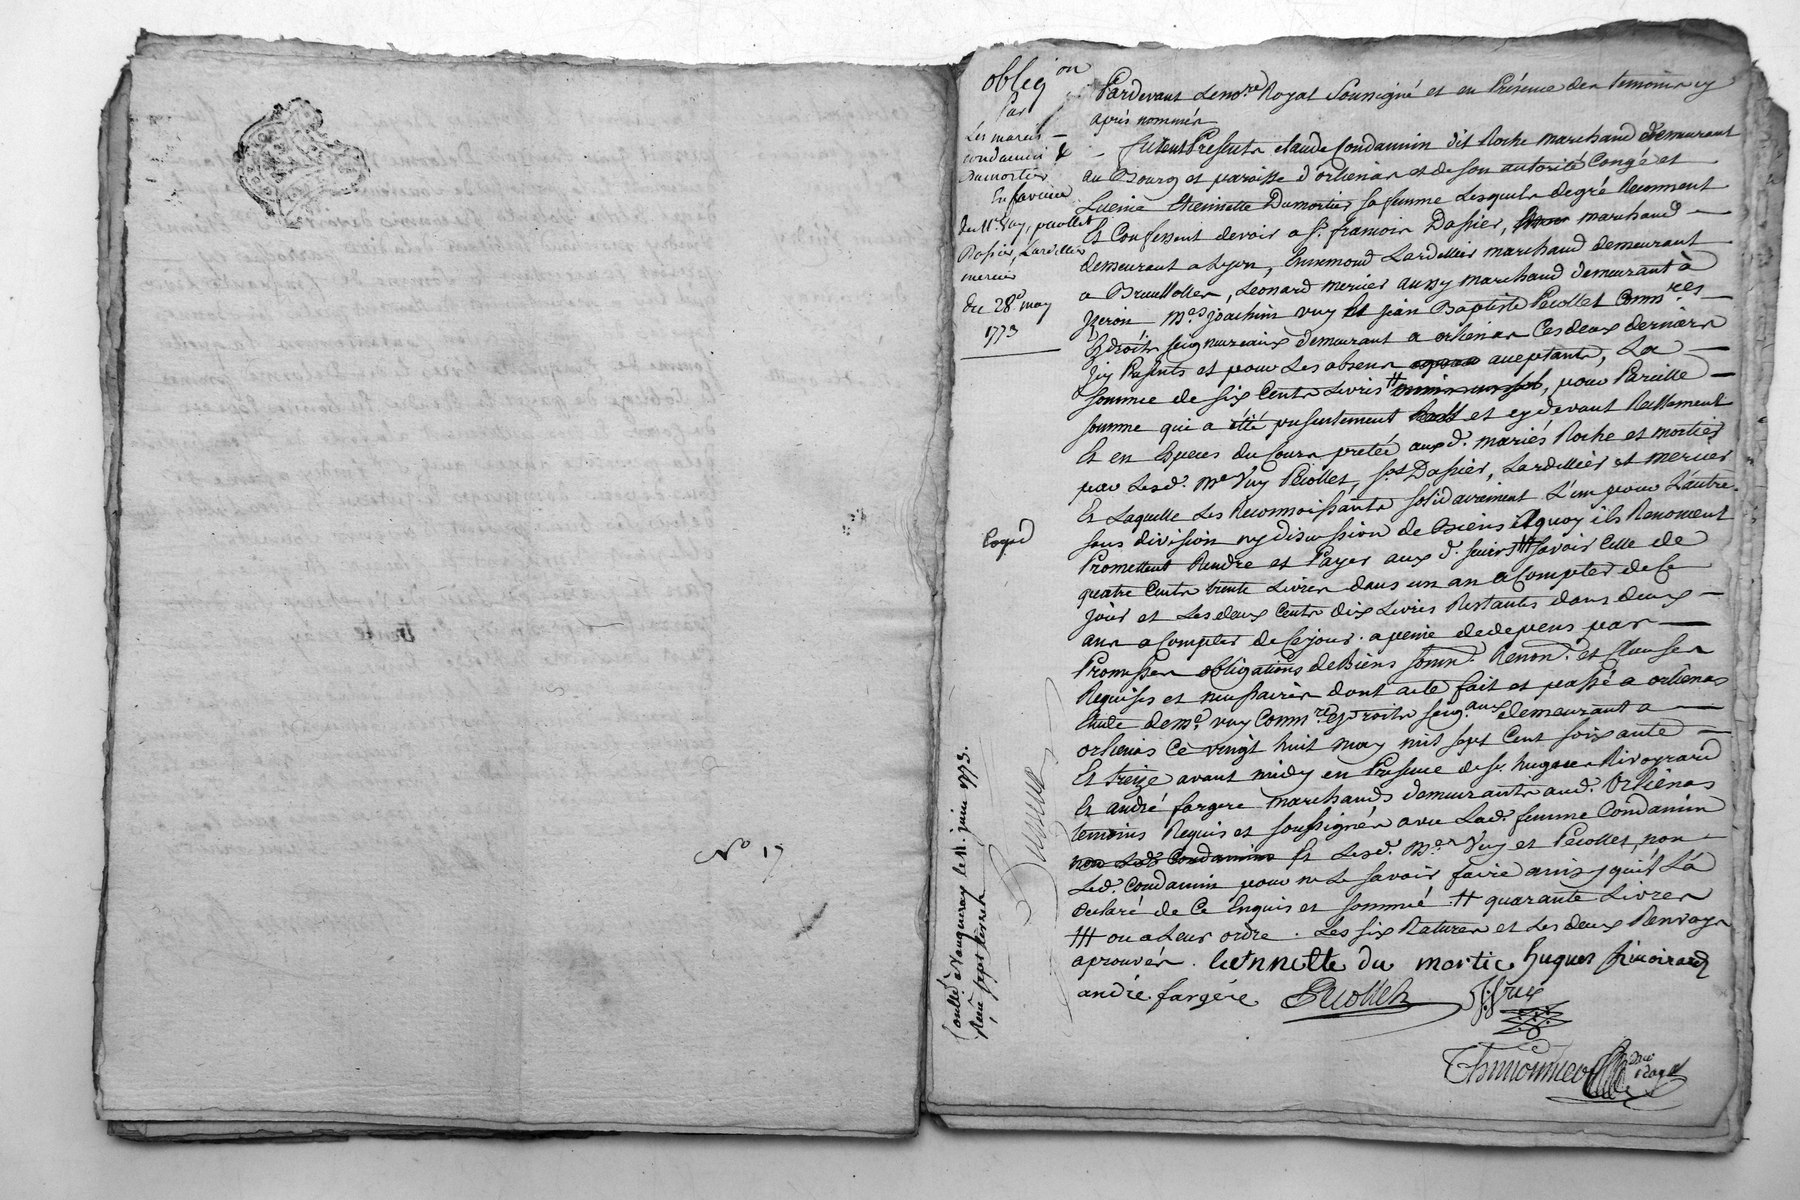 No 17
obligon
Par
Les mariés
condamin &
Dumortier
En faveur
de Me Vuy, pecollet
Dassier, Lardellier
mercier
du 28e may
1773
Expéd
Controllé a Vaugneray le 11 juin 1773.
Pardevant Le nore Royal Soussigné et en Présence des temoins cy
après nommés
furent Presents claude Condamin dit Roche marchand demeurant
au Bourg et paroisse d'orlienas et de son autorité Congé et
Licence Etiennette Dumortier sa femme Lesquels de gré Reconnent
Et Confessent devoir a sr. francois Dassier, marchand
demeurant a Lyon, Ennemond Lardellier marchand demeurant
a Bruillolles, Leonard mercier aussy marchand demeurant à
yzeron Mes joachim vuy Et jean Baptiste Pecollet Commres
Es droits seigneuriaux demeurant a orlienas Ces deux derniers
Icy Presents et pour Les absens acceptants, La
somme de six Cents Livres # , pour Pareille
somme qui a été presentement et cy devant Reellement
Et en Especes du Cours pretée auxd. mariés Roche et mortier
par Lesd. Me Vuy Pecollet, srs Dassier, Lardellier et mercier
Et Laquelle Les Reconnoissants solidairement L'un pour L'autre
sans division ny discussion de Biens a quoy ils Renoncent
Promettent Rendre et Payer aux d. sieurs ## savoir Celle de
quatre Cents trente Livres dans un an a Compter de Ce
jour et Les deux Cents dix Livres Restantes dans deux
ans a Compter de Ce jour. a peine de depens par
Promesses obligations de Biens soumn. Renonn. et Clauses
Requises et necessaires dont acte fait et passé a orlienas
Etude de me. vuy Commre Es droits seigaux demeurant a
orlienas Ce vingt huit may mil sept Cent soixante
Et treize avant midy en Presence de sr. hugues Rivoyrard
Et andré fargere marchands demeurants aud. Orlienas
temoins Requis et soussignés avec Lad. femme Condamin
non Led. Condamin Et Lesd. Mes Vuy et Pecollet, non
Led. Condamin pour ne Le savoir faire ainsy qu'il L'a
declaré de Ce Enquis et sommé # quarante Livres
## ou a Leur ordre. Les six Ratures et Les deux Renvoys
aprouvés. tiennette du mortie hugues Rivoirard
andré fargére Pecollet